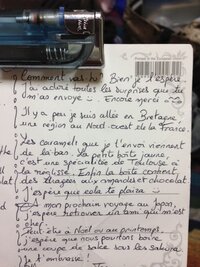 Printed in the European Union
Comment vas-tu ? Bien je l'espère.
J'ai adoré toutes les surprises que tu
m'as envoyé. Encore merci
Il y a peu je suis allée en Bretagne
une région au Nord-ouest de la France.
Les caramels que je t'envoi viennent
de là bas. La petite boîte jaune,
c'est une spécialité de Toulouse à
la réglisse. Enfin la boîte contient
des dragées aux amandes et chocolat.
J'espère que cela te plaira
A mon prochain voyage au Japon,
j'espère retrouver un ami qui m'est
cher.
Peut être à Noël ou au printemps.
J'espère que nous pourrons boire
une coupe de sake sous les sakura.
Je t'embrasse !